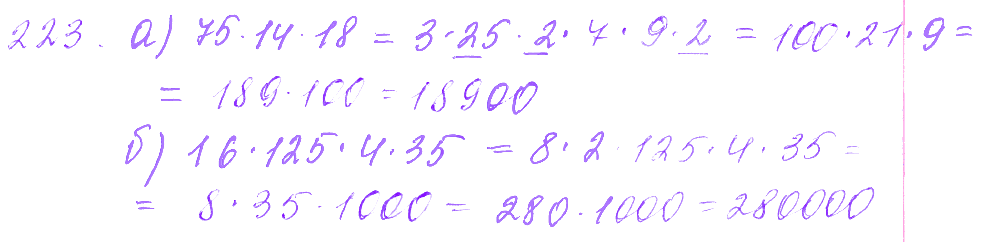 223. а) 75·14·18 = 3·25·2·7·9·2 = 100·21·9 =
= 189·100 = 18900
б) 16·125·4·35 = 8·2·125·4·35 =
= 8·35·1000 = 280·1000 = 280000